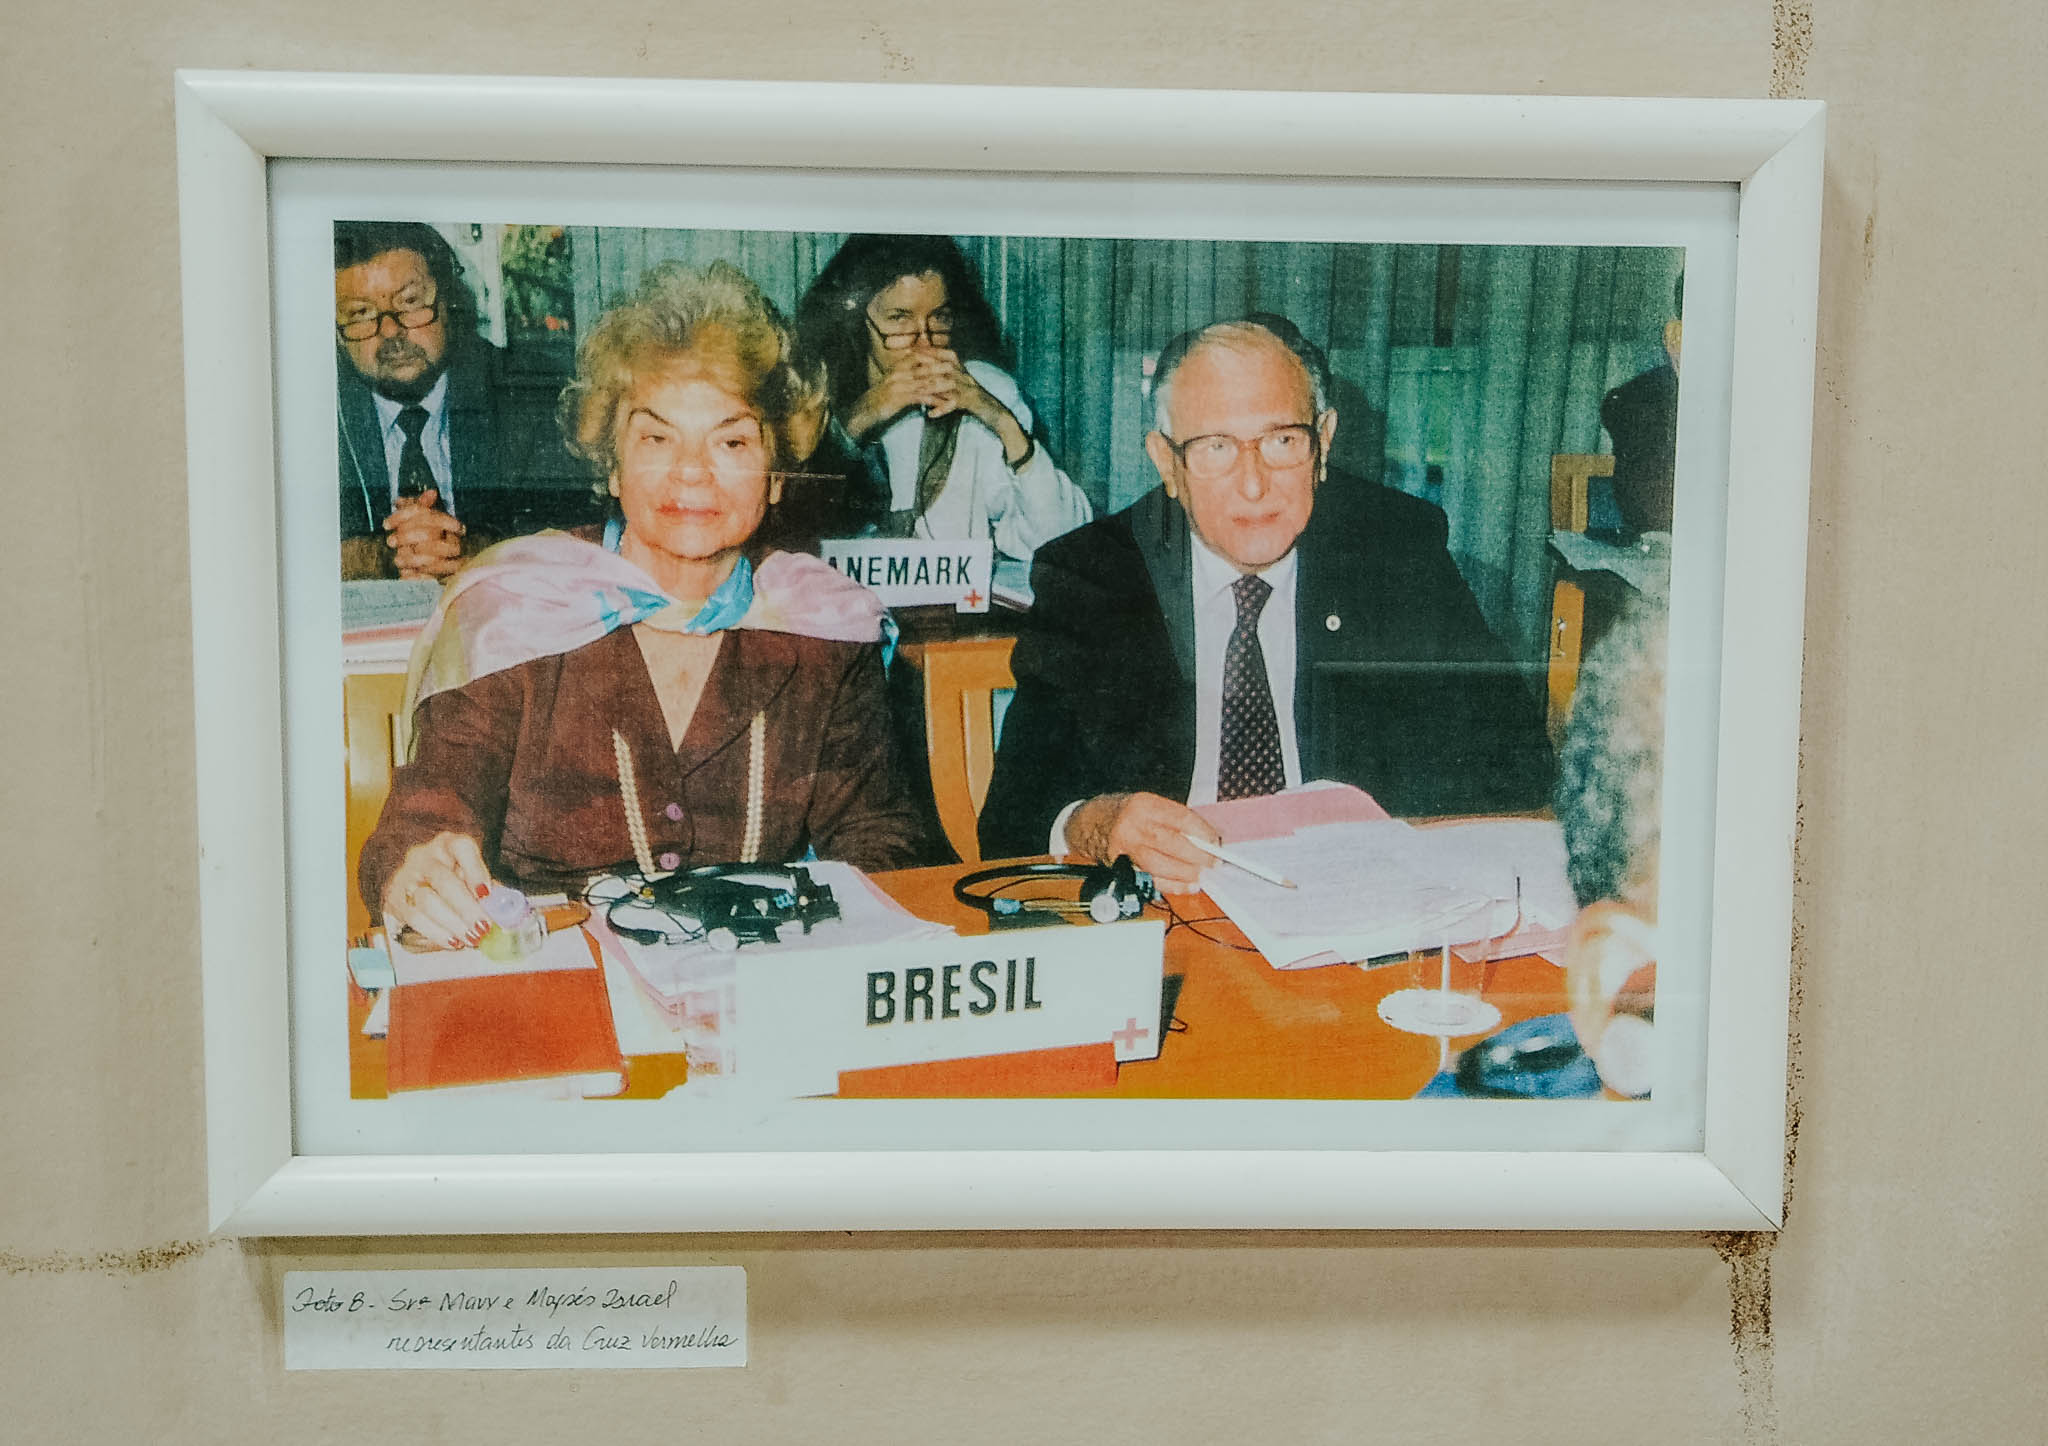 ANEMARK
BRESIL
Foto 8 - Srª Mavy e Moysés Israel
representantes da Cruz Vermelha